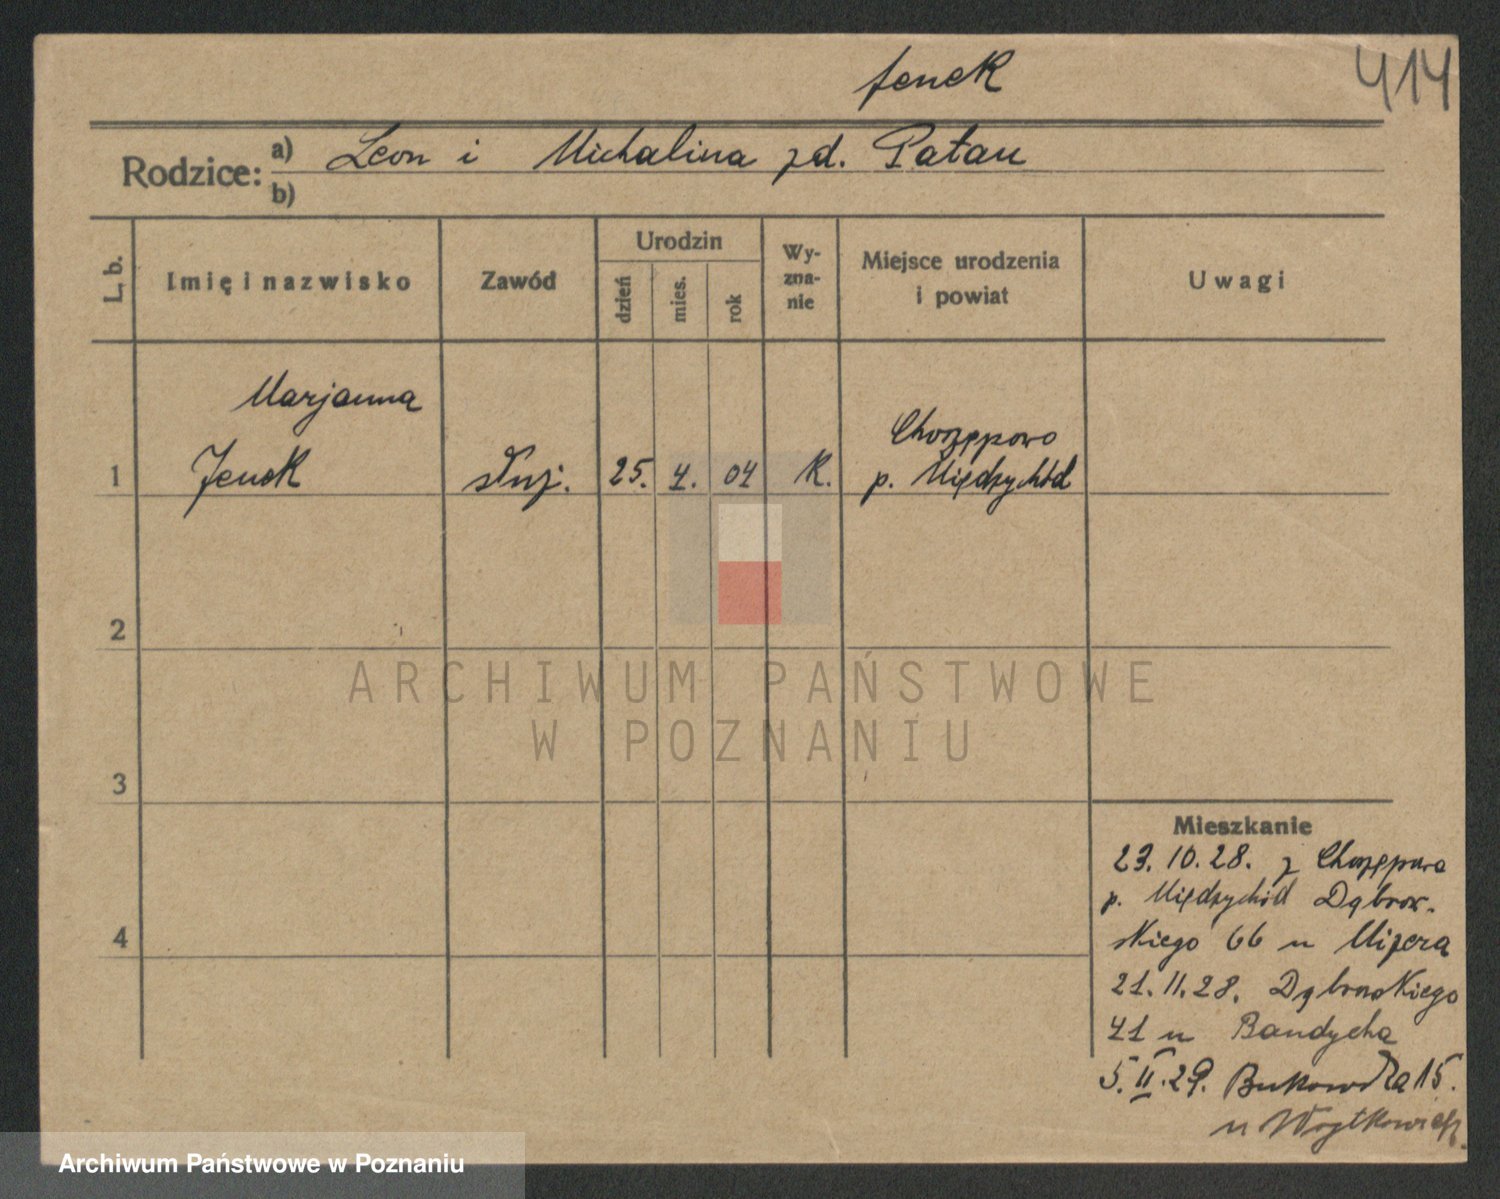 Jenek
414
Rodzice: a) Leon i Michalina zd. Patan
b)
L. b.
Imię i nazwisko
Zawód
Urodzin
dzień
mies.
rok
Wy-
zna-
nie
Miejsce urodzenia
i powiat
Uwagi
Marjanna
Chorzępowo
1 Jenek służ. 25. 4. 04 K. p. Międzychód
2
ARCHIWUM PAŃSTWOWE
W POZNANIU
3
Mieszkanie
23. 10. 28. z Chorzępowa
p. Międzychód Dąbrow-
skiego 66 u Mizera
21. 11. 28. Dąbrowskiego
41 u Bandycha
5. II. 29. Bukowska 15.
u Wojtkowiak
4
Archiwum Państwowe w Poznaniu